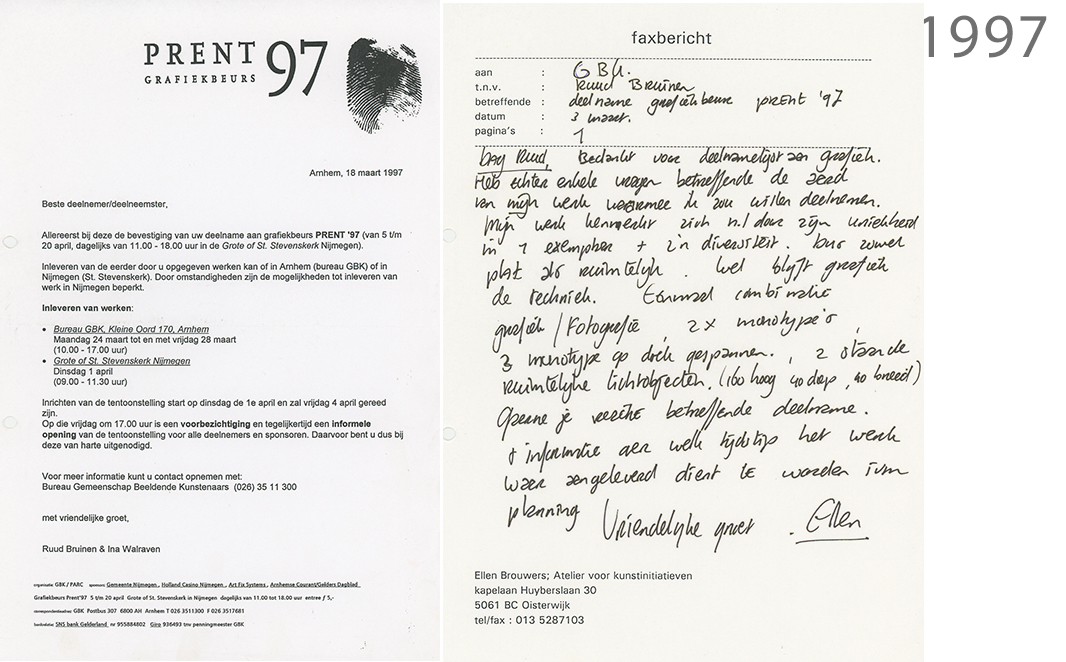 1997
PRENT 97
GRAFIEKBEURS
Arnhem, 18 maart 1997
Beste deelnemer/deelneemster,
Allereerst bij deze de bevestiging van uw deelname aan grafiekbeurs PRENT '97 (van 5 t/m
20 april, dagelijks van 11.00 - 18.00 uur in de Grote of St. Stevenskerk Nijmegen).
Inleveren van de eerder door u opgegeven werken kan of in Arnhem (bureau GBK) of in
Nijmegen (St. Stevenskerk). Door omstandigheden zijn de mogelijkheden tot inleveren van
werk in Nijmegen beperkt.
Inleveren van werken:
• Bureau GBK, Kleine Oord 170, Arnhem
Maandag 24 maart tot en met vrijdag 28 maart
(10.00 - 17.00 uur)
• Grote of St. Stevenskerk Nijmegen
Dinsdag 1 april
(09.00 - 11.30 uur)
Inrichten van de tentoonstelling start op dinsdag de 1e april en zal vrijdag 4 april gereed
zijn.
Op die vrijdag om 17.00 uur is een voorbezichtiging en tegelijkertijd een informele
opening van de tentoonstelling voor alle deelnemers en sponsoren. Daarvoor bent u dus bij
deze van harte uitgenodigd.
Voor meer informatie kunt u contact opnemen met:
Bureau Gemeenschap Beeldende Kunstenaars (026) 35 11 300
met vriendelijke groet,
Ruud Bruinen & Ina Walraven
organisatie: GBK / PARC sponsors: Gemeente Nijmegen, Holland Casino Nijmegen, Art Fix Systems, Arnhemse Courant/Gelders Dagblad
Grafiekbeurs Prent'97 5 t/m 20 april Grote of St. Stevenskerk in Nijmegen dagelijks van 11.00 tot 18.00 uur entree ƒ 5,-
correspondentieadres: GBK Postbus 307 6800 AH Arnhem T 026 3511300 F 026 3517681
bankrelatie: SNS bank Gelderland nr 955884802 Giro 936493 tnv penningmeester GBK
faxbericht
aan : GBK.
t.n.v. : Ruud Bruinen
betreffende : deelname grafiekbeurs PRENT '97
datum : 3 maart.
pagina's : 1
Dag Ruud, Bedankt voor deelnamelijst aan grafiek.
Heb echter enkele vragen betreffende de aard
van mijn werk waarmee ik zou willen deelnemen.
Mijn werk kenmerkt zich n.l door zijn uniekheid
in 1 exemplaar + z'n diversiteit. Dus zowel
plat als ruimtelijk. Wel blijft grafiek
de techniek. Eenmaal combinatie
grafiek / Fotografie, 2x monotype's,
3 monotype op doek gespannen., 2 staande
ruimtelijke lichtobjecten. (160 hoog 40 diep, 40 breed)
Gaarne je reactie betreffende deelname.
+ informatie over welk tijdstip het werk
waar aangeleverd dient te worden ivm
planning
Vriendelijke groet. Ellen
Ellen Brouwers; Atelier voor kunstinitiatieven
kapelaan Huyberslaan 30
5061 BC Oisterwijk
tel/fax : 013 5287103